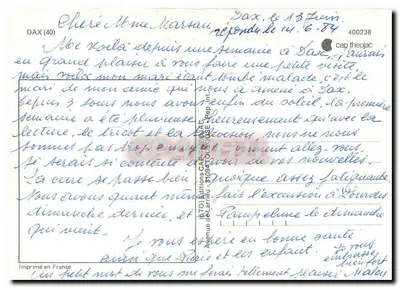 DAX (40)
Dax, le 13 Juin
Chère Mme Marsau
répondu le 14.6.84
400238
cap theojac
Me voilà depuis une semaine à Dax, j'aurais
eu grand plaisir à vous faire une petite visite
mais voilà mon mari étant tombé malade, c'est le
mari de mon amie qui nous a amené à Dax.
depuis 3 jours nous avons enfin du soleil, la première
semaine a été pluvieuse heureusement qu'avec la
lecture, le tricot et la télévision, nous ne nous
sommes pas trop ennuyé comment allez-vous.
Je serais si contente d'avoir de vos nouvelles.
La cure se passe bien quoique assez fatiguante
Nous avons quand même fait l'excursion à Lourdes
dimanche dernier, et Pampelune le dimanche
qui vient.
Je vous espère en bonne santé
ainsi que Pierre et les enfants.
Je vous embrasse
bien fort
Un petit mot de vous me ferait tellement plaisir
Imprimé en France